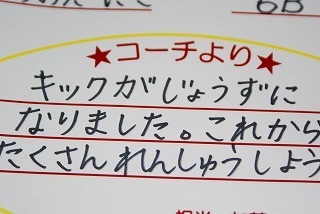 6B
★コーチより★
キックがじょうずに
なりました。これから
たくさんれんしゅうしよう